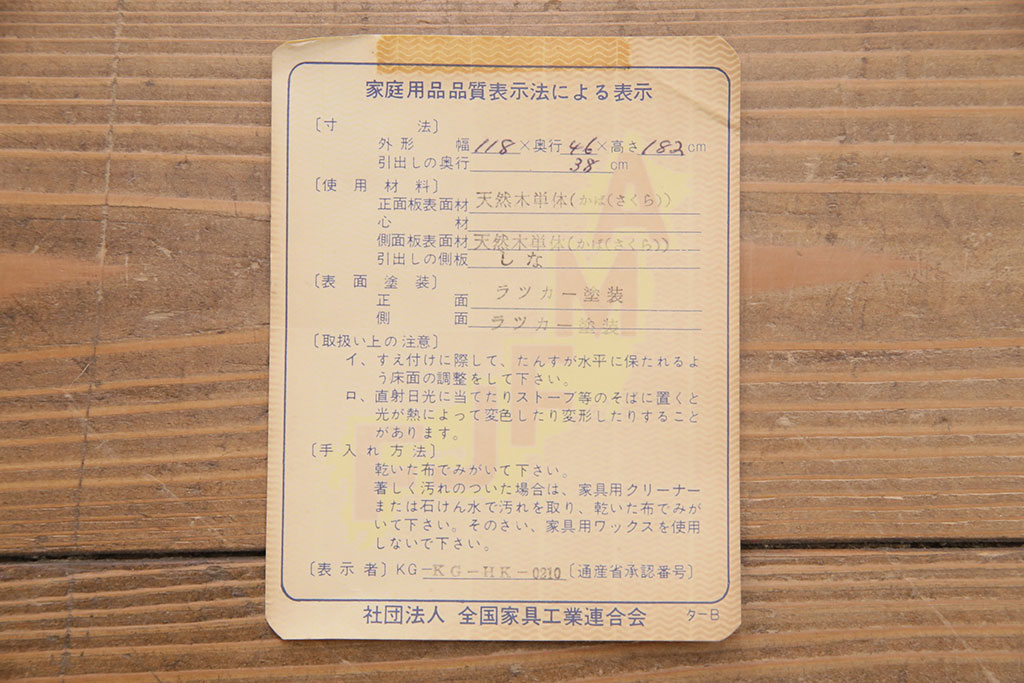 家庭用品品質表示法による表示
〔寸　法〕
外形　幅 118 ×奥行 46 ×高さ 182 cm
引出しの奥行 38 cm
〔使用材料〕
正面板表面材 天然木単体(かば(さくら))
心材
側面板表面材 天然木単体(かば(さくら))
引出しの側板 しな
〔表面塗装〕
正面 ラツカー塗装
側面 ラツカー塗装
〔取扱い上の注意〕
イ、すえ付けに際して、たんすが水平に保たれるよ
う床面の調整をして下さい。
ロ、直射日光に当てたりストーブ等のそばに置くと
光が熱によって変色したり変形したりすること
があります。
〔手入れ方法〕
乾いた布でみがいて下さい。
著しく汚れのついた場合は、家具用クリーナー
または石けん水で汚れを取り、乾いた布でみが
いて下さい。そのさい、家具用ワックスを使用
しないで下さい。
〔表示者〕KG-KG-HK-0210〔通産省承認番号〕
社団法人 全国家具工業連合会　ターB